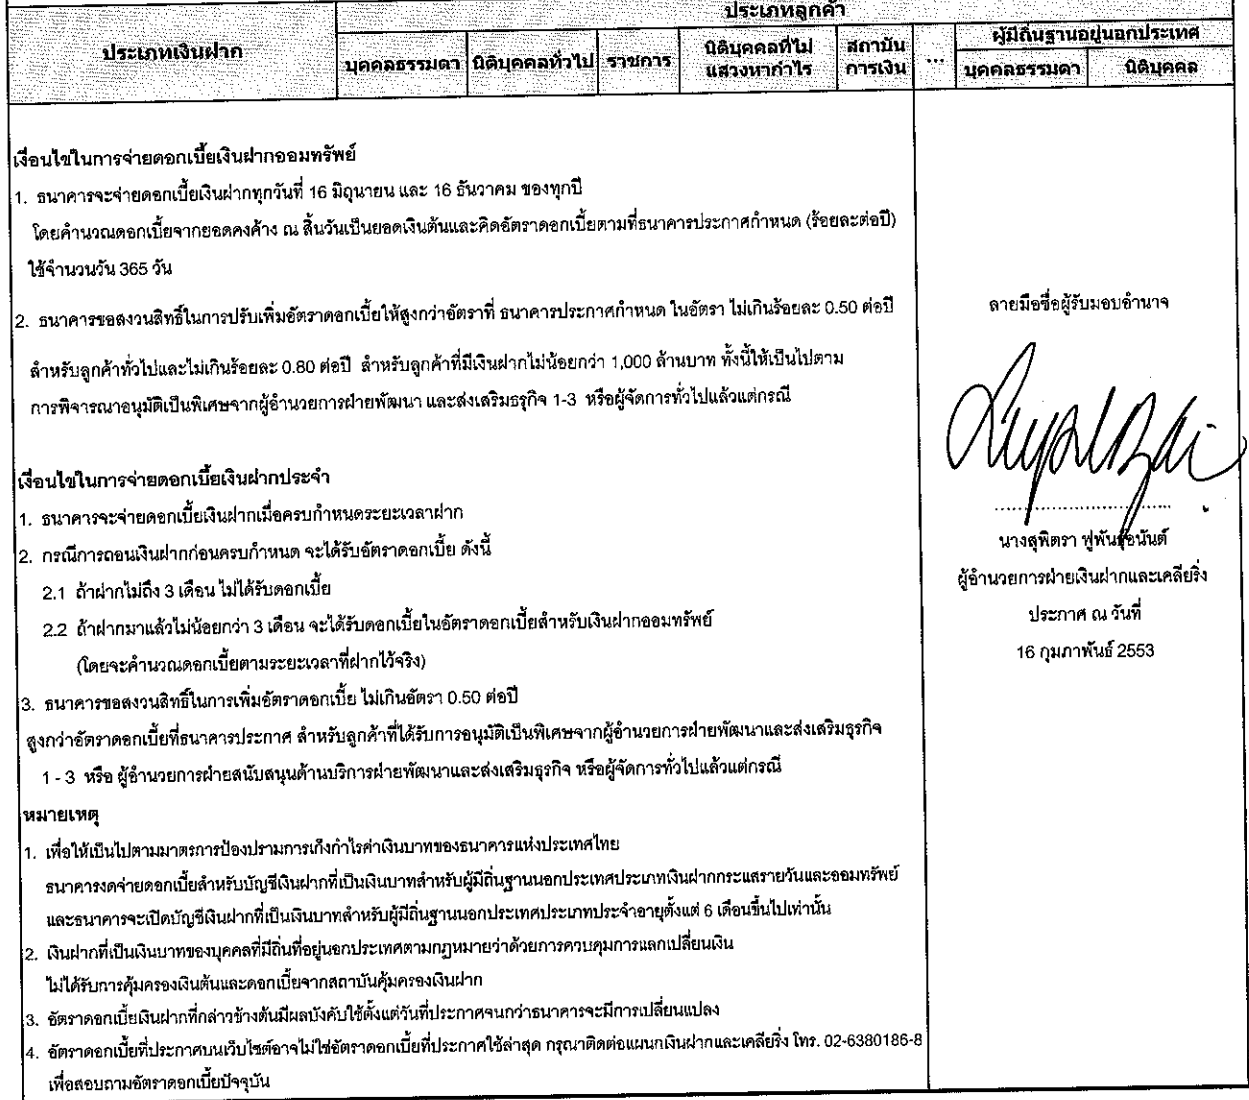 ประเภทเงินฝาก
ประเภทลูกค้า
บุคคลธรรมดา
นิติบุคคลทั่วไป
ราชการ
นิติบุคคลที่ไม่
แสวงหากำไร
สถาบัน
การเงิน
...
ผู้มีถิ่นฐานอยู่นอกประเทศ
บุคคลธรรมดา
นิติบุคคล
เงื่อนไขในการจ่ายดอกเบี้ยเงินฝากออมทรัพย์
1. ธนาคารจะจ่ายดอกเบี้ยเงินฝากทุกวันที่ 16 มิถุนายน และ 16 ธันวาคม ของทุกปี
โดยคำนวณดอกเบี้ยจากยอดคงค้าง ณ สิ้นวันเป็นยอดเงินต้นและคิดอัตราดอกเบี้ยตามที่ธนาคารประกาศกำหนด (ร้อยละต่อปี)
ใช้จำนวนวัน 365 วัน
2. ธนาคารขอสงวนสิทธิ์ในการปรับเพิ่มอัตราดอกเบี้ยให้สูงกว่าอัตราที่ ธนาคารประกาศกำหนด ในอัตรา ไม่เกินร้อยละ 0.50 ต่อปี
สำหรับลูกค้าทั่วไปและไม่เกินร้อยละ 0.80 ต่อปี สำหรับลูกค้าที่มีเงินฝากไม่น้อยกว่า 1,000 ล้านบาท ทั้งนี้ให้เป็นไปตาม
การพิจารณาอนุมัติเป็นพิเศษจากผู้อำนวยการฝ่ายพัฒนา และส่งเสริมธุรกิจ 1-3 หรือผู้จัดการทั่วไปแล้วแต่กรณี
เงื่อนไขในการจ่ายดอกเบี้ยเงินฝากประจำ
1. ธนาคารจะจ่ายดอกเบี้ยเงินฝากเมื่อครบกำหนดระยะเวลาฝาก
2. กรณีการถอนเงินฝากก่อนครบกำหนด จะได้รับอัตราดอกเบี้ย ดังนี้
2.1 ถ้าฝากไม่ถึง 3 เดือน ไม่ได้รับดอกเบี้ย
2.2 ถ้าฝากมาแล้วไม่น้อยกว่า 3 เดือน จะได้รับดอกเบี้ยในอัตราดอกเบี้ยสำหรับเงินฝากออมทรัพย์
(โดยจะคำนวณดอกเบี้ยตามระยะเวลาที่ฝากไว้จริง)
3. ธนาคารขอสงวนสิทธิ์ในการเพิ่มอัตราดอกเบี้ย ไม่เกินอัตรา 0.50 ต่อปี
สูงกว่าอัตราดอกเบี้ยที่ธนาคารประกาศ สำหรับลูกค้าที่ได้รับการอนุมัติเป็นพิเศษจากผู้อำนวยการฝ่ายพัฒนาและส่งเสริมธุรกิจ
1 - 3 หรือ ผู้อำนวยการฝ่ายสนับสนุนด้านบริการฝ่ายพัฒนาและส่งเสริมธุรกิจ หรือผู้จัดการทั่วไปแล้วแต่กรณี
หมายเหตุ
1. เพื่อให้เป็นไปตามมาตรการป้องปรามการเก็งกำไรค่าเงินบาทของธนาคารแห่งประเทศไทย
ธนาคารงดจ่ายดอกเบี้ยสำหรับบัญชีเงินฝากที่เป็นเงินบาทสำหรับผู้มีถิ่นฐานนอกประเทศประเภทเงินฝากกระแสรายวันและออมทรัพย์
และธนาคารจะเปิดบัญชีเงินฝากที่เป็นเงินบาทสำหรับผู้มีถิ่นฐานนอกประเทศประเภทประจำอายุตั้งแต่ 6 เดือนขึ้นไปเท่านั้น
2. เงินฝากที่เป็นเงินบาทของบุคคลที่มีถิ่นที่อยู่นอกประเทศตามกฎหมายว่าด้วยการควบคุมการแลกเปลี่ยนเงิน
ไม่ได้รับการคุ้มครองเงินต้นและดอกเบี้ยจากสถาบันคุ้มครองเงินฝาก
3. อัตราดอกเบี้ยเงินฝากที่กล่าวข้างต้นมีผลบังคับใช้ตั้งแต่วันที่ประกาศจนกว่าธนาคารจะมีการเปลี่ยนแปลง
4. อัตราดอกเบี้ยที่ประกาศบนเว็บไซต์อาจไม่ใช่อัตราดอกเบี้ยที่ประกาศใช้ล่าสุด กรุณาติดต่อแผนกเงินฝากและเคลียริ่ง โทร. 02-6380186-8
เพื่อสอบถามอัตราดอกเบี้ยปัจจุบัน
ลายมือชื่อผู้รับมอบอำนาจ
นางสุพิตรา ฟูพันธุ์อนันต์
ผู้อำนวยการฝ่ายเงินฝากและเคลียริ่ง
ประกาศ ณ วันที่
16 กุมภาพันธ์ 2553